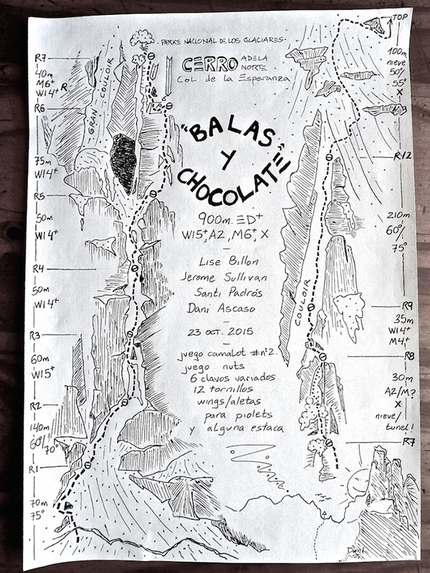 PARKE NACIONAL DE LOS GLACIARES
CERRO ADELA
NORTE
Col de la Esperanza
"BALAS
Y
CHOCOLATE"
900m. ED+
WI5+, A2, M6+, X
Lise Billon
Jerome Sullivan
Santi Padrós
Dani Ascaso
23 oct. 2015
juego camalot #nº2
juego nuts
6 clavos variados
12 tornillos
wings/aletas
para piolets
y alguna estaca
GRAN COULOIR
R7
40m
M6+
WI4+ R
R6
75m
WI4+
R5
50m
WI4+
R4
50m
WI4+
R3
60m
WI5+
R2
140m
60º/70º
R1
70m
75º
TOP
100m
nieve
50/
55º
X
R12
210m
60º/
75º
COULOIR
R9
35m
WI4+
M4+
R8
30m
A2/M?
X
nieve/
tunel!
R7